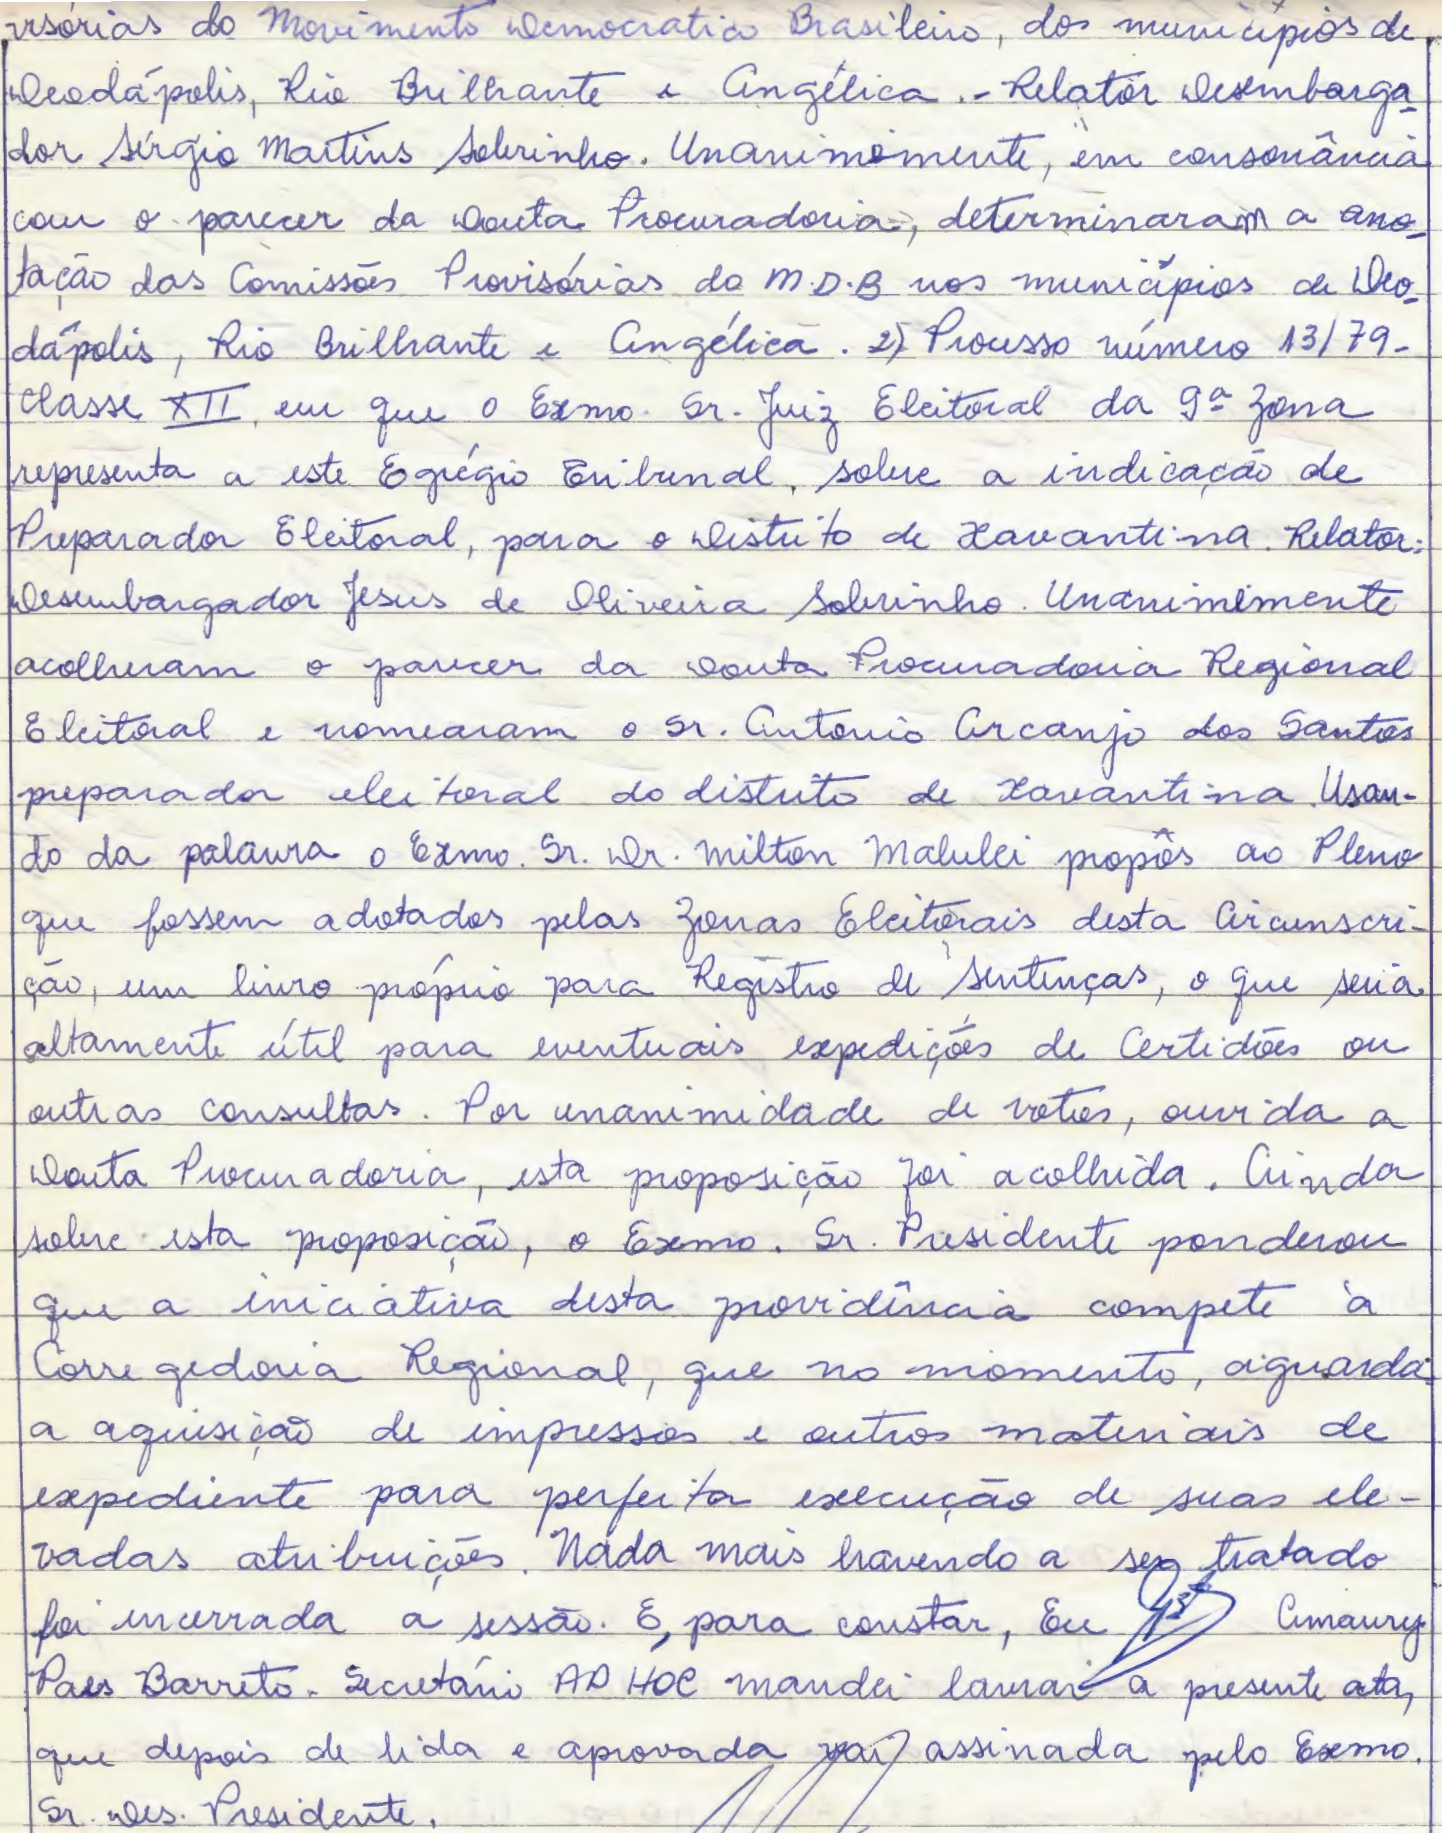 visórias do Movimento Democratico Brasileiro, dos municípios de
Deodápolis, Rio Brilhante e Angélica. - Relator Desembarga-
dor Sérgio Martins Sobrinho. Unanimemente, em consonância
com o parecer da Douta Procuradoria, determinaram a ano-
tação das Comissões Provisórias do M.D.B nos municípios de Deo-
dápolis, Rio Brilhante e Angélica. 2) Processo número 13/79-
classe XII, em que o Exmo. Sr. Juiz Eleitoral da 9ª Zona
representa a este Egrégio Tribunal, sobre a indicação de
Preparador Eleitoral, para o Distrito de Xavantina. Relator:
Desembargador Jesus de Oliveira Sobrinho. Unanimemente
acolheram o parecer da Douta Procuradoria Regional
Eleitoral e nomearam o Sr. Antonio Arcanjo dos Santos
preparador eleitoral do distrito de Xavantina. Usan-
do da palavra o Exmo. Sr. Dr. Milton Malulei propôs ao Pleno
que fossem adotados pelas Zonas Eleitorais desta Circunscri-
ção, um livro próprio para Registro de Sentenças, o que seria
altamente útil para eventuais expedições de Certidões ou
outras consultas. Por unanimidade de votos, ouvida a
Douta Procuradoria, esta proposição foi acolhida. Ainda
sobre esta proposição, o Exmo. Sr. Presidente ponderou
que a iniciativa desta providência compete à
Corregedoria Regional, que no momento, aguarda
a aquisição de impressos e outros materiais de
expediente para perfeita execução de suas ele-
vadas atribuições. Nada mais havendo a ser tratado
foi encerrada a sessão. E, para constar, Eu Amaury
Paes Barreto. Secretário AD HOC mandei lavrar a presente ata,
que depois de lida e aprovada vai assinada pelo Exmo.
Sr. Des. Presidente.